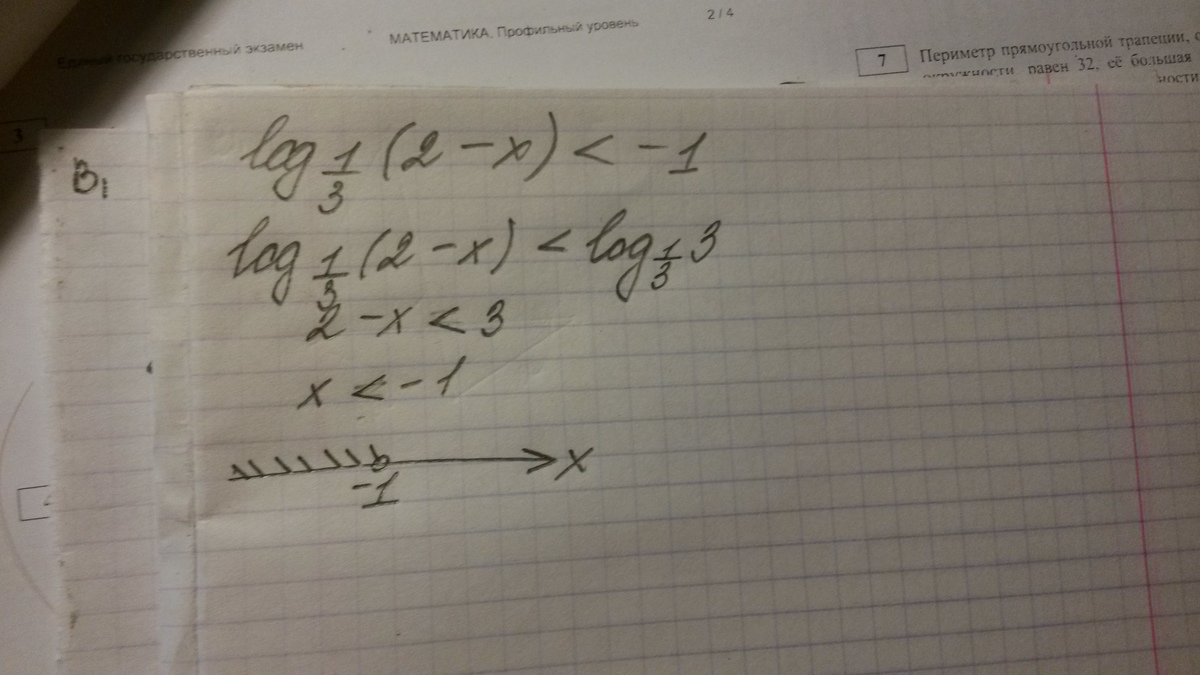 2 / 4
Единый государственный экзамен
МАТЕМАТИКА. Профильный уровень
7
Периметр прямоугольной трапеции,
окружности, равен 32, её большая
3
B₁
log_{1/3} (2 - x) < -1
log_{1/3} (2 - x) < log_{1/3} 3
2 - x < 3
x < -1
x
-1